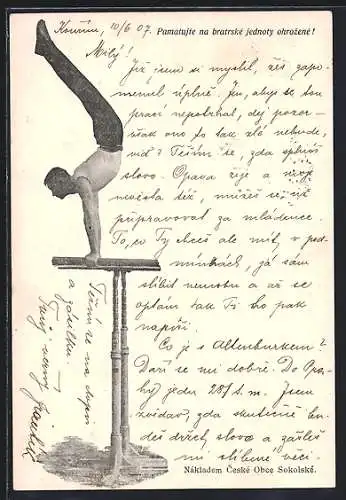 Kouřim, 10/6 07.
Pamatujte na bratrské jednoty ohrožené!
Milý!
Již jsem si myslil, žes zapo-
menul úplně. Inu, abys se tou
prací nepotrhal, dej pozor –
však ono to tak zlé nebude,
viď? Těším se, zda splníš
slovo. Opava žije a
mačeta též, můžeš se již
připravovat za mládence.
To, co Ty chceš ale mít, v pod-
mínkách, já sám
slíbit nemohu a až se
optám tak Ti ho pak
napíši.
Co je s Altenburkem?
Daří se mi dobře. Do Pra-
hy jedu 28/ t. m. Jsem
zvědav, zda skutečně bu-
deš držet slovo a zašleš
mi slíbené věci.
Těším se na dopis
a zdravím
Tvůj věrný
Nákladem České Obce Sokolské.